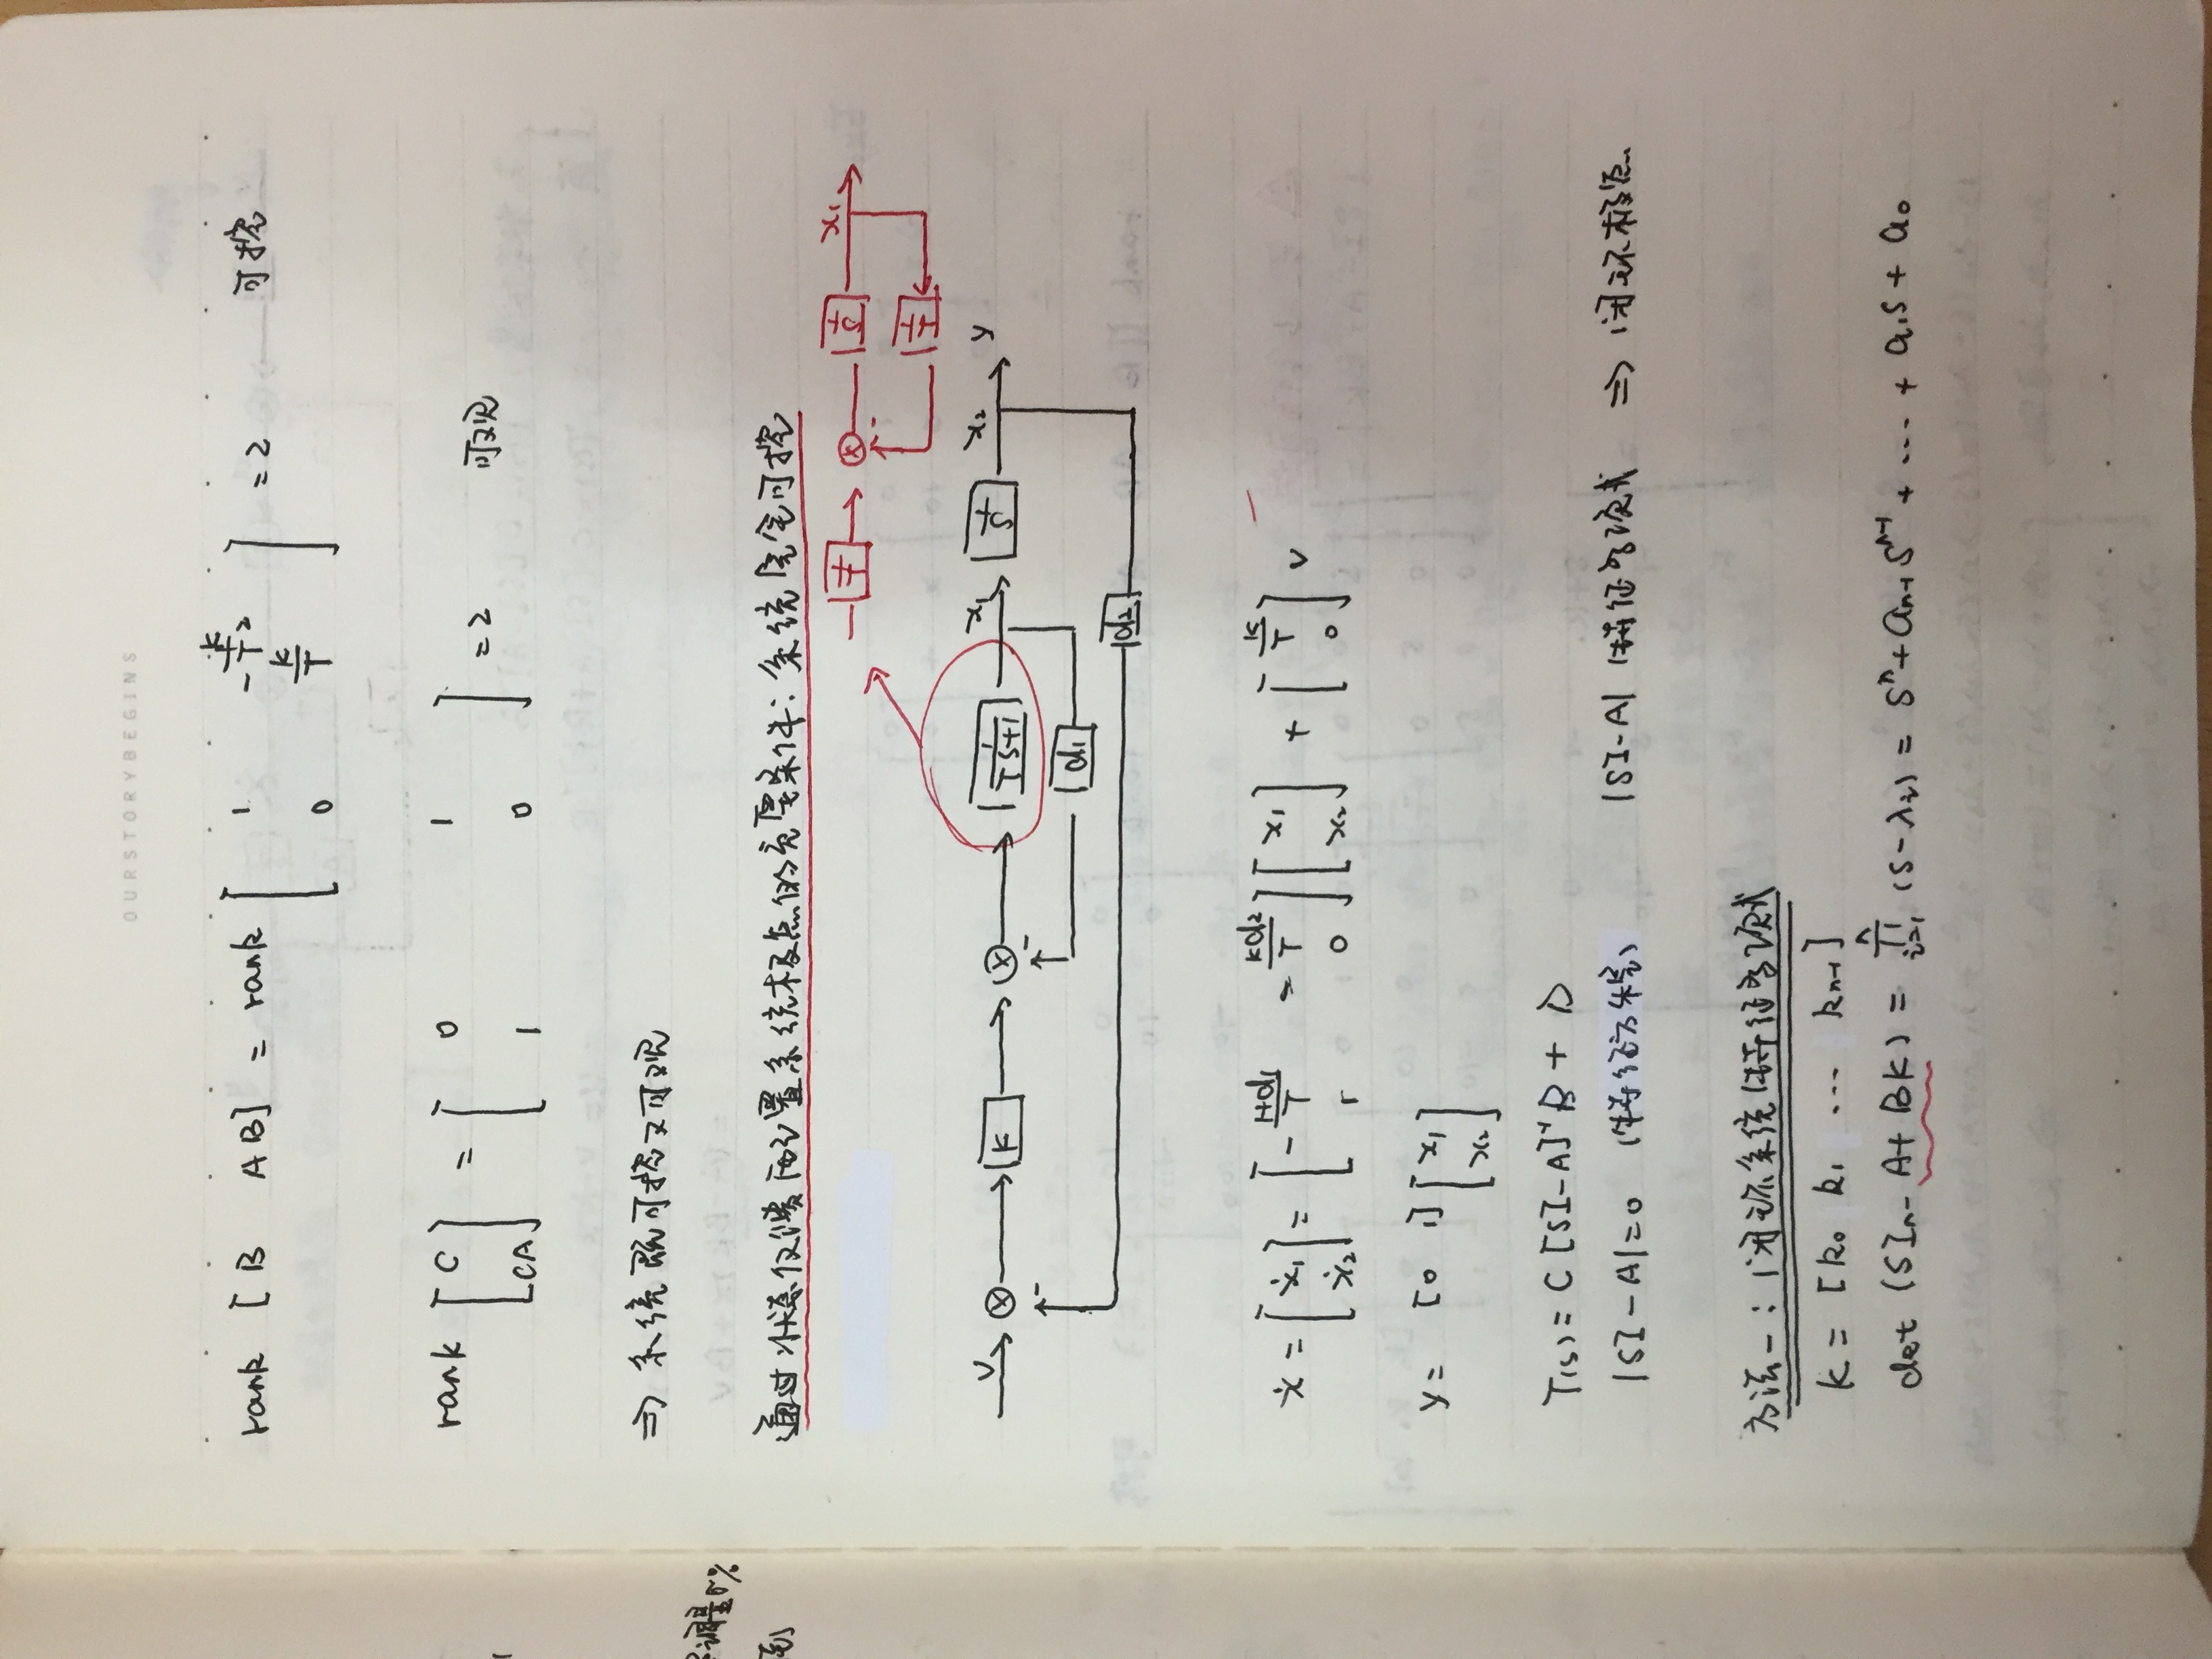 OURSTORYBEGINS
rank [ B AB ] = rank [ 1 -K/T² ; 0 K/T ] = 2 可控
rank [ C ; CA ] = [ 0 1 ; 1 0 ] = 2 可观
⇒ 系统既可控又可观
通过状态反馈配置系统极点的充要条件：系统完全可控
1/T ⊗ - 1/S x₁
1/T
V ⊗ - K ⊗ - 1/(TS+1) x₁ 1/S x₂ y
d₁
d₂
ẋ = [ ẋ₁ ; ẋ₂ ] = [ -(1+d₁)/T -Kd₂/T ; 1 0 ] [ x₁ ; x₂ ] + [ K/T ; 0 ] v
y = [0 1] [ x₁ ; x₂ ]
T(s) = C [SI-A]⁻¹ B + D
|SI-A|=0 (特征方程) |SI-A| 特征多项式 ⇒ 闭环极点
方法一：闭环系统特征多项式
K = [k₀ k₁ ... kₙ₋₁]
det (SIₙ - A + BK) = ∏ᵢ₌₁ⁿ (S-λᵢ) = Sⁿ + aₙ₋₁Sⁿ⁻¹ + ... + a₁S + a₀
调量σ%